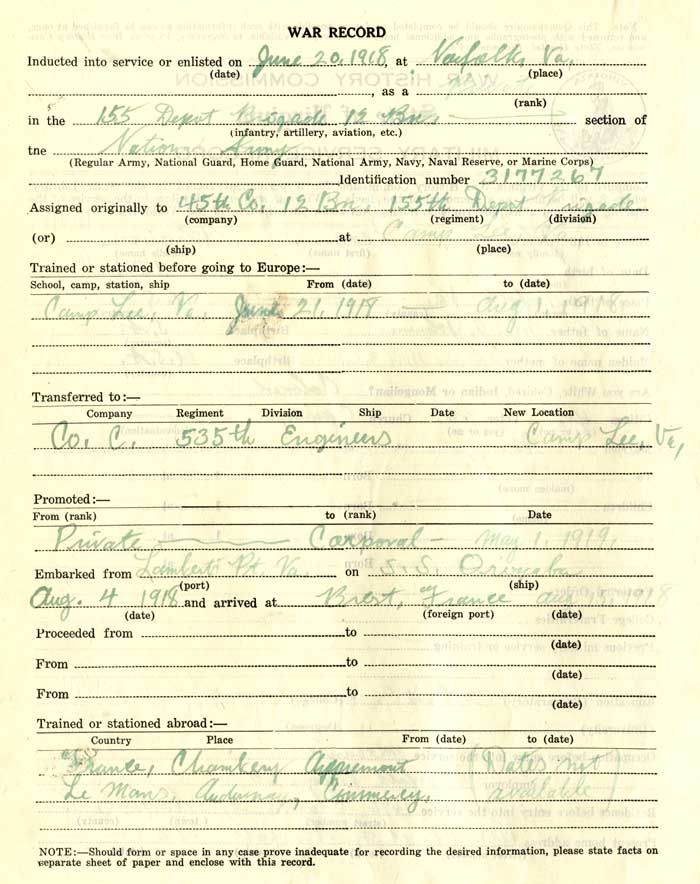 WAR RECORD
Inducted into service or enlisted on June 20, 1918, at Norfolk, Va.
(date) (place)
, as a
(rank)
in the 155 Depot Brigade 12 Bn. section of
(infantry, artillery, aviation, etc.)
tne National Army
(Regular Army, National Guard, Home Guard, National Army, Navy, Naval Reserve, or Marine Corps)
Identification number 3177267
Assigned originally to 45th Co. 12 Bn. 155th Depot Brigade
(company) (regiment) (division)
(or) at Camp Lee, Va.
(ship) (place)
Trained or stationed before going to Europe:—
School, camp, station, ship From (date) to (date)
Camp Lee, Va. June 21, 1918 — Aug 1, 1918
Transferred to:—
Company Regiment Division Ship Date New Location
Co. C. 535th Engineers Camp Lee, Va,
Promoted:—
From (rank) to (rank) Date
Private — Corporal — May 1, 1919.
Embarked from Lamberts Pt. Va. on S.S. Orizaba
(port) (ship)
Aug. 4 1918 and arrived at Brest, France Aug 1918
(date) (foreign port) (date)
Proceeded from to
(date)
From to
(date)
From to
(date)
Trained or stationed abroad:—
Country Place From (date) to (date)
France, Chambery (Dates not
Le Mans, Commercy, available)
NOTE:—Should form or space in any case prove inadequate for recording the desired information, please state facts on
separate sheet of paper and enclose with this record.